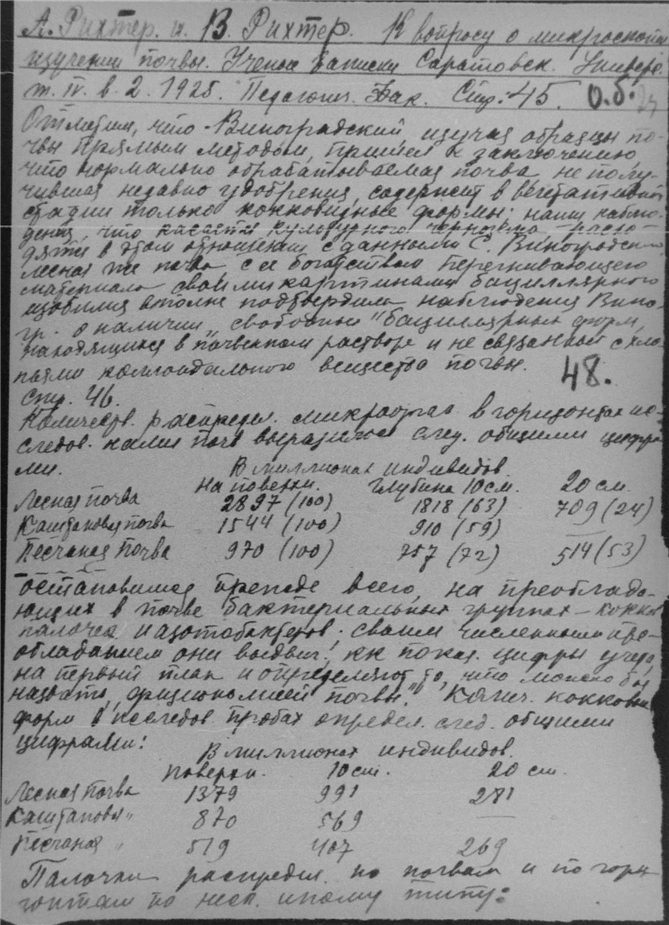 А. Рихтер. и. В. Рихтер. К вопросу о микроскопи
изучении почвы. Ученые Записки Саратовск. Универс.
т. IV. в. 2. 1925. Педагогич. Фак. Стр. 45. О.б.
Отметим, что Виноградский изучая образцы по-
чвы прямым методом, пришел к заключению
что нормально обрабатываемая почва не полу-
чившая недавно удобрения, содержит в вегетативной
стадии только кокковидные формы; наши наблю-
дения, что касается культурного чернозема расхо-
дятся в этом отношении с данными С. Виноградск
лесная же почва с ее богатством перегнивающего
материала своими картинами бациллярного
изобилия вполне подтвердила наблюдения Вино-
гр. о наличии "свободных" бациллярных форм,
находящихся в почвенном растворе и не связанной с хло-
пьями коллоидального вещества почвы. 48.
Стр. 46.
Количеств. распредел. микроорган в горизонтах ис-
следов. нами почв выразится след. общими цифра-
ми.
В миллионах индивидов
На поверхн. Глубина 10 см. 20 см.
Лесная почва 2897 (100) 1818 (63) 709 (24)
Каштановая почва 1544 (100) 910 (59) —
Песчаная почва 970 (100) 757 (72) 514 (53)
остановимся прежде всего, на преоблада-
ющих в почве бактериальных группах – кокков
палочек и азотобактеров. своим численным пре-
обладанием они выдвиг., как показ. цифры учета,
на первый план и определяют то, что можно бы
назвать "физиономией почвы." Колич. кокковых
форм в исследов. пробах определ. след. общими
цифрами:
В миллионах индивидов.
поверхн. 10 см. 20 см.
Лесная почва 1379 991 281
Каштановая " 870 569 —
Песчаная " 519 407 269
Палочки распредел. по почвам и по гори
зонтам по неск. иному типу: